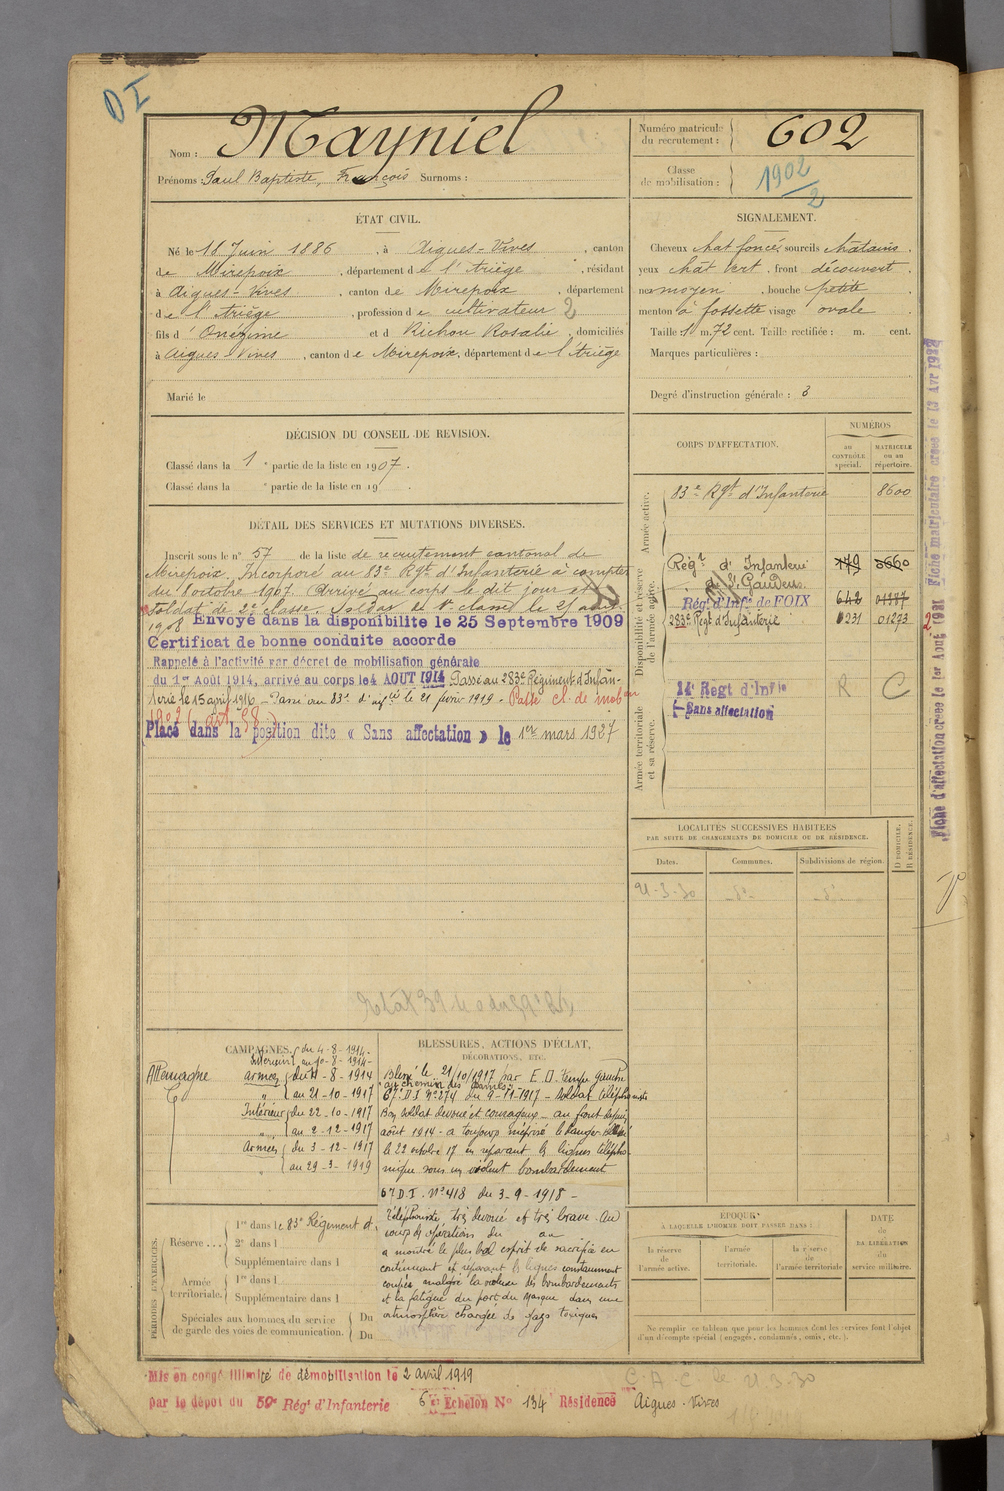 D I
Nom : Mayniel
Prénoms : Paul Baptiste, François Surnoms :
Numéro matricule du recrutement : 602
Classe de mobilisation : 1902/2
ÉTAT CIVIL.
Né le 18 Juin 1886, à Aigues-Vives, canton
de Mirepoix, département de l'Ariège, résidant
à Aigues-Vives, canton de Mirepoix, département
de l'Ariège, profession de cultivateur 2
fils d'Onézime et d Richou Rosalie, domiciliés
à Aigues-Vives, canton de Mirepoix, département de l'Ariège
Marié le
SIGNALEMENT.
Cheveux chat foncé, sourcils châtains.
yeux chât vert, front découvert,
nez moyen, bouche petite
menton à fossette visage ovale
Taille 1 m. 72 cent. Taille rectifiée : m. cent.
Marques particulières :
Degré d'instruction générale : 3
DÉCISION DU CONSEIL DE REVISION.
Classé dans la 1 e partie de la liste en 1907.
Classé dans la e partie de la liste en 19 .
DÉTAIL DES SERVICES ET MUTATIONS DIVERSES.
Inscrit sous le n° 57 de la liste de recrutement cantonal de
Mirepoix. Incorporé au 83e Rgt d'Infanterie à compter
du 8 octobre 1907. Arrivé au corps le dit jour et
soldat de 2e classe. Soldat de 1e classe le 21
1908 Envoyé dans la disponibilite le 25 Septembre 1909
Certificat de bonne conduite accorde
Rappelé à l'activité par décret de mobilisation générale
du 1er Août 1914, arrivé au corps le 4 AOUT 1914 Passé au 283e Régiment d'Infan-
terie le 15 avril 1916 - Passé au 83e d'Infie le 21 févr. 1919 - Passé cl. de mob on
1902 (art. 58)
Placé dans la position dite « Sans affectation » le 1er mars 1937
CORPS D'AFFECTATION.
NUMÉROS
au CONTRÔLE spécial.
MATRICULE ou au répertoire.
Armée active.
83e Rgt d'Infanterie 8600
Disponibilité et réserve de l'armée active.
Régt d'Infanterie de St Gaudens 179 5660
Régt d'Infie de FOIX 642 01287
283e Regt d'Infanterie 0231 01273
Armée territoriale et sa réserve.
14e Regt d'Infie R C
Sans affectation
LOCALITÉS SUCCESSIVES HABITÉES
PAR SUITE DE CHANGEMENTS DE DOMICILE OU DE RÉSIDENCE.
Dates. Communes. Subdivisions de région. D DOMICILE. R RÉSIDENCE.
21-3-30 -do- -do-
CAMPAGNES.
Allemagne
Intérieur du 4-8-1914-
au 10-8-1914-
Armées du 11-8-1914
" au 21-10-1917
Intérieur du 22-10-1917
" au 2-12-1917
Armées du 3-12-1917
" au 29-3-1919
BLESSURES, ACTIONS D'ÉCLAT,
DÉCORATIONS, ETC.
Blessé le 21/10/1917 par E.O.
au chemin des Dames
67e D.I. N° 274 du 9-11-1917 - Soldat téléphoniste
Bon soldat dévoué et courageux - au front depuis
août 1914 - a toujours méprisé le danger. Blessé
le 22 octobre 17 en réparant les lignes télépho-
nique sous un violent bombardement
67 D.I. N° 418 du 3-9-1918 -
Téléphoniste très dévoué et très brave. Au
cours des opérations du au
a montré le plus bel esprit de sacrifice en
continuant et réparant les lignes constamment
coupées malgré la violence des bombardements
et la fatigue du port du masque dans une
atmosphère chargée de gaz toxiques
PÉRIODES D'EXERCICES.
Réserve ... 1re dans le 83e Régiment d.
2e dans l
Supplémentaire dans l
Armée territoriale. 1re dans l
Supplémentaire dans l
Spéciales aux hommes du service de garde des voies de communication. Du
Du
ÉPOQUE
À LAQUELLE L'HOMME DOIT PASSER DANS :
la réserve de l'armée active.
l'armée territoriale.
la réserve de l'armée territoriale
DATE de LA LIBÉRATION du service militaire.
Ne remplir ce tableau que pour les hommes dont les services font l'objet
d'un décompte spécial (engagés, condamnés, omis, etc.).
Mis en congé illimité de démobilisation le 2 avril 1919
par le dépôt du 59e Régt d'Infanterie 6e Echelon N° 134 Résidence Aigues-Vives
C.A.C. le 21-3-30
Fiche d'affectation créée le 1er Aout 1931 Fiche matriculaire créée le 13 Avr 1932